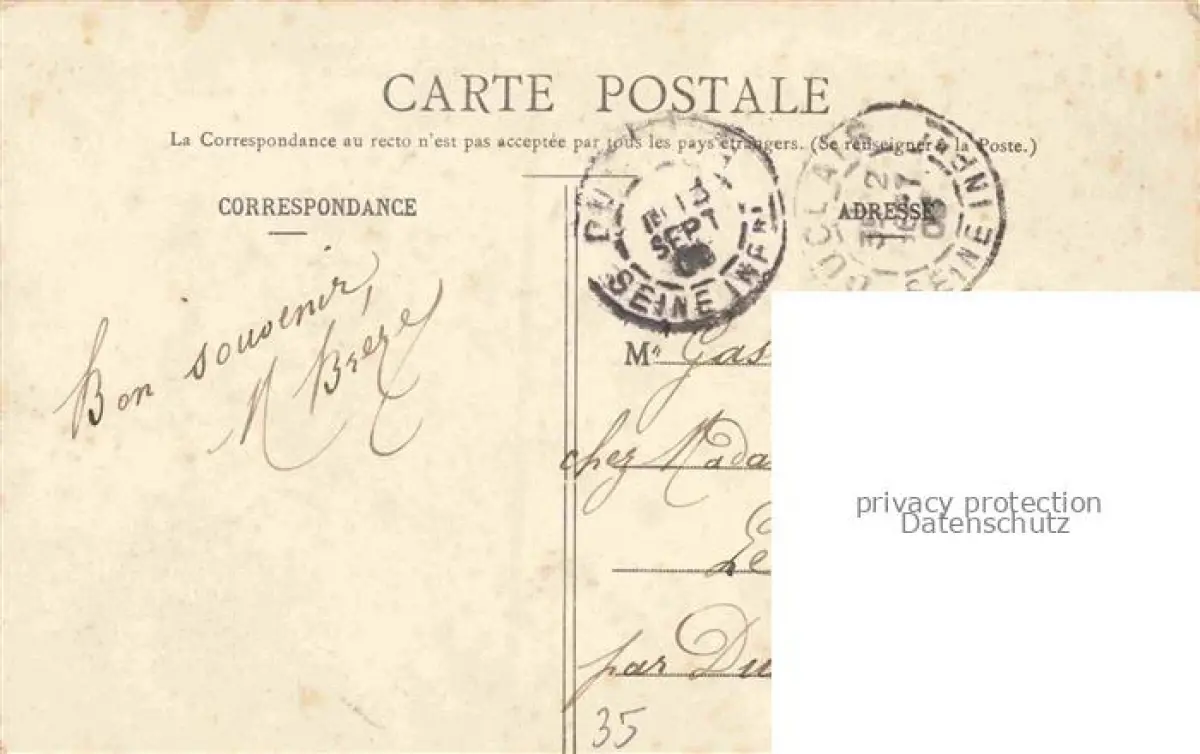 CARTE POSTALE
La Correspondance au recto n'est pas acceptée par tous les pays étrangers. (Se renseigner à la Poste.)
CORRESPONDANCE
ADRESSE
DU
13
SEPT
SEINE INFRE
DUCLAIR
12
SEPT
SEINE INFRE
Bon souvenir,
Mr Gas
chez Mada
Le
par Du
35
privacy protection
Datenschutz